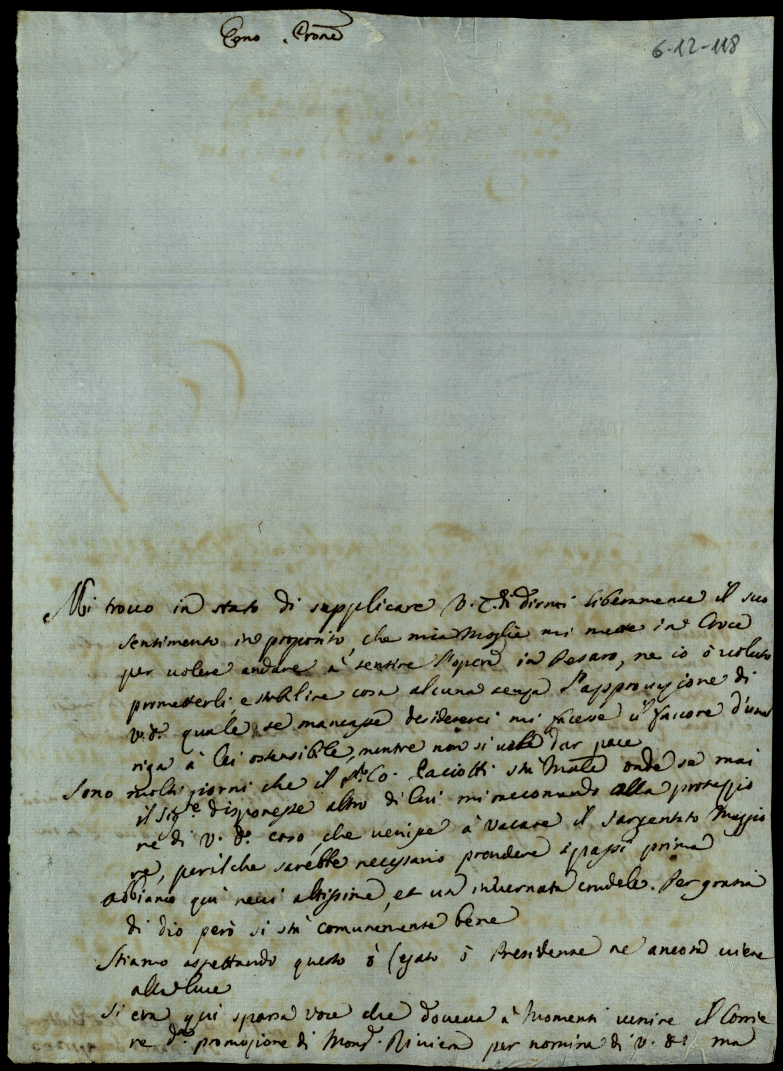 Eeno . Prone
6-12-118
Mi trovo in stato di supplicare V. E. di dirmi liberamente il suo
sentimento in proposito, che mia Moglie mi mette in Croce
per volere andare à sentire l'opera in Pesaro, ne io ò voluto
prometterli e stabilire cosa alcuna senza l'approvazione di
V. E. quale se mancasse desidererei mi facesse il favore d'una
riga à lei ostensibile, mentre non si vole dar pace
Sono molti giorni che il Co. Paciotti stà Male onde se mai
il Sig.re disponesse altro di lui mi raccomando alla protezzio
ne di V. E. caso, che venisse à vacare il Sargentato Maggio
re, perilche sarebbe necessario prendere i passi prima
Abbiamo quì nevi altissime, et un invernata crudele. Per grazia
di dio però si stà comunemente bene
Stiamo aspettando questo ò Legato ò Presidente ne ancora viene
alla luce
Si era quì sparsa voce che doveva à Momenti venire il Corrie
re promozione di Mons. Riviera per nomina di V. E. ma